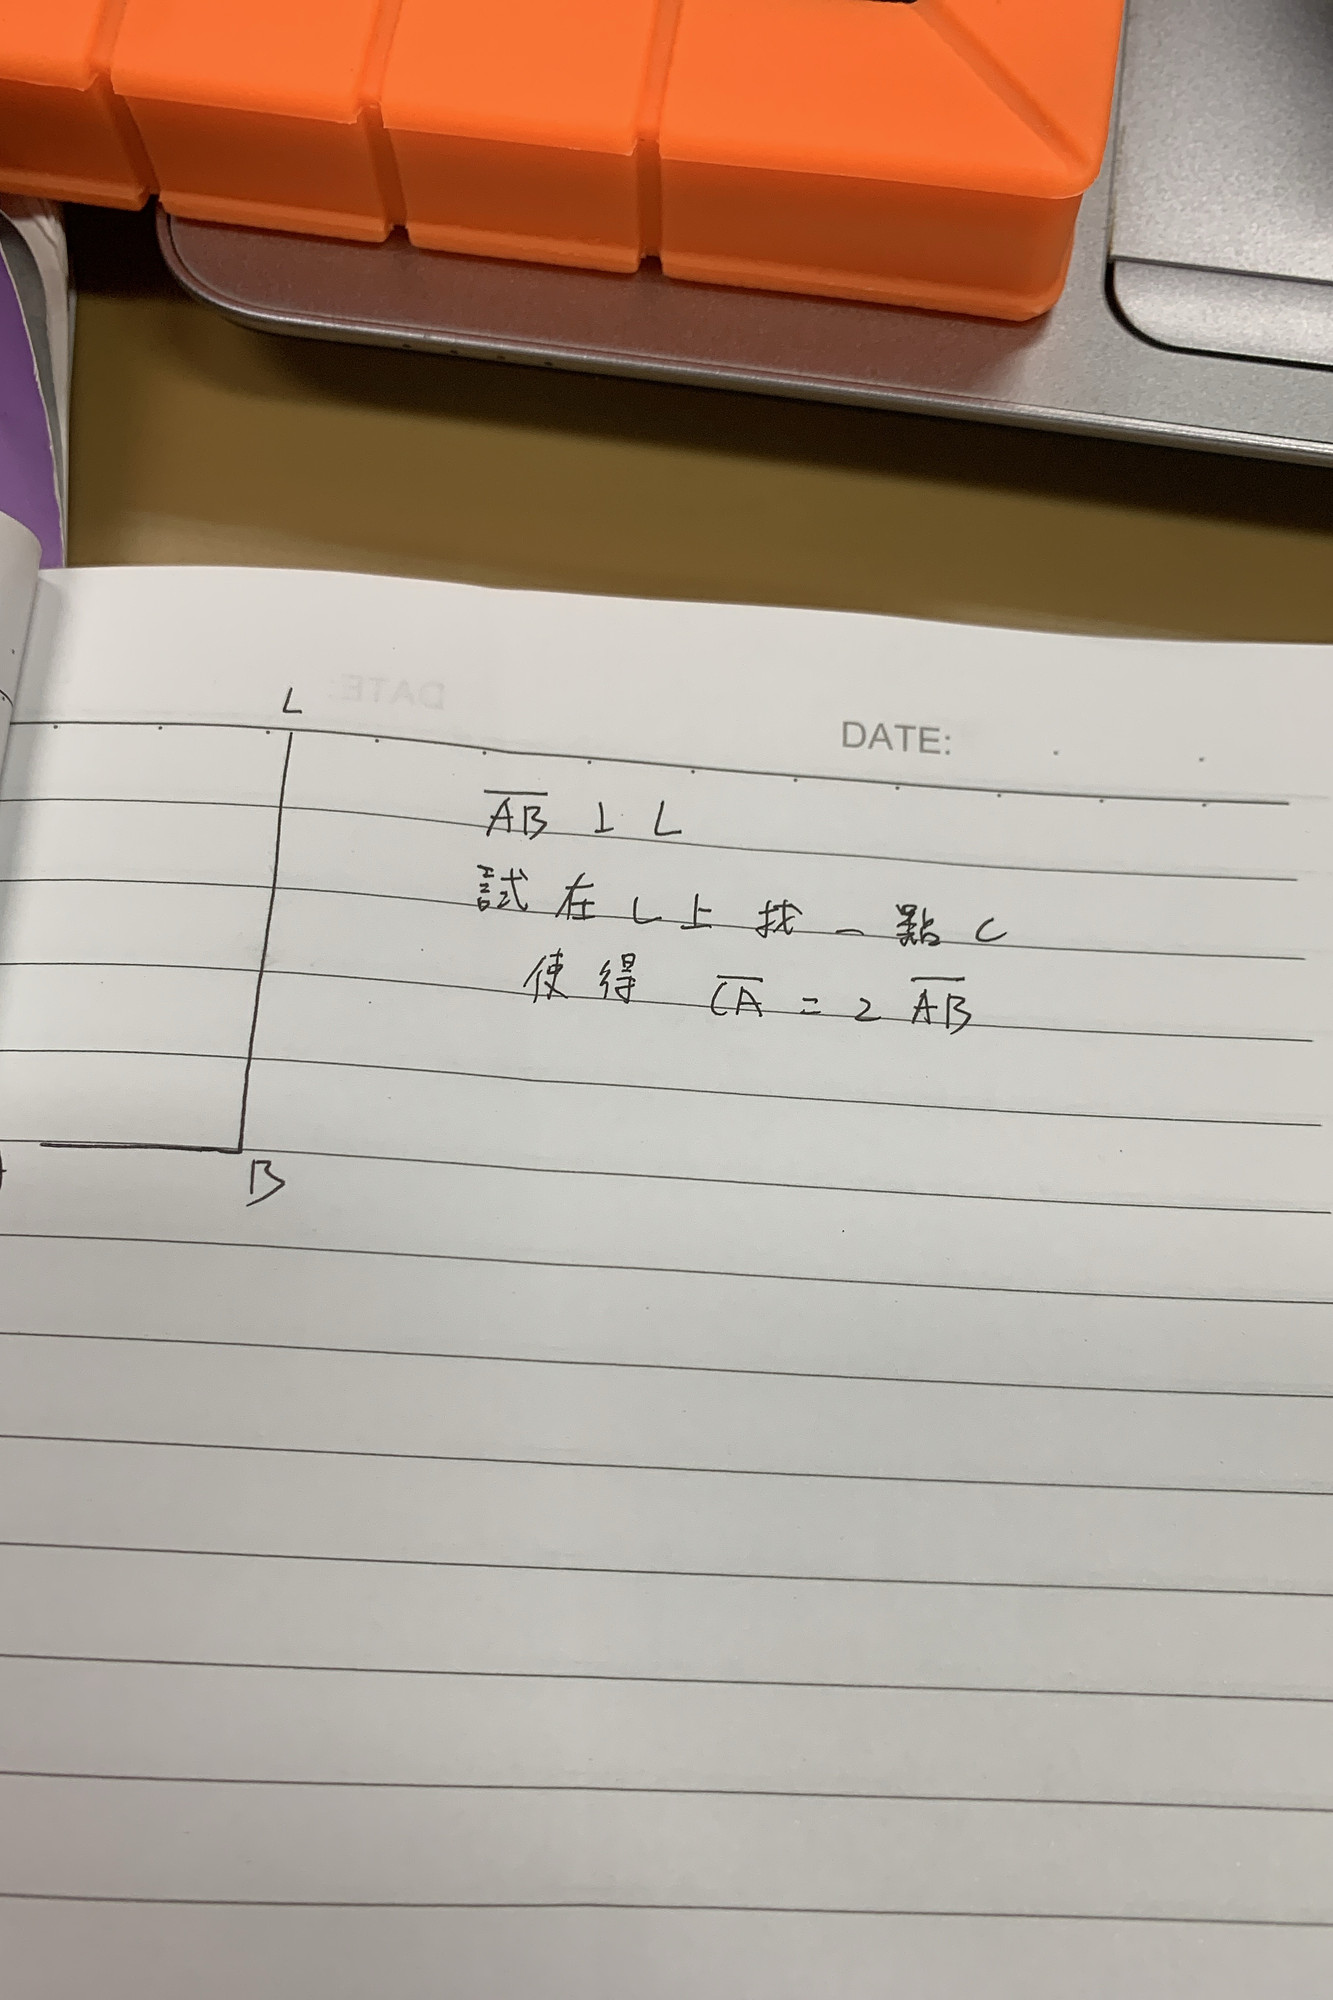 L
DATE:
A̅B̅ ⊥ L
試在 L 上找一點 C
使得 C̅A̅ = 2 A̅B̅
B